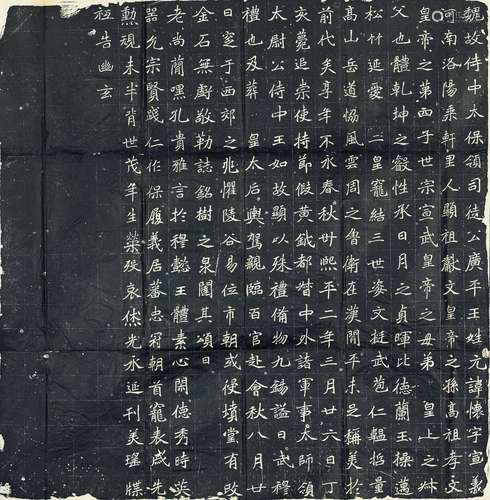 魏故侍中太保領司徒公廣平王姓元諱懷字宣義
河南洛陽乘軒里人顯祖獻文皇帝之孫高祖孝文
皇帝之第四子世宗宣武皇帝之母弟　皇上之叔
父也體乾坤之叡性承日月之貞暉比德蘭玉操邁
松竹延愛二皇寵結三世姿文挺武苞仁韞哲量
高山岳道協風雲周之魯衛在漢間平未之稱美於
前代矣享年不永春秋卅熙平二年三月廿六日丁
亥薨追崇使持節假黃鉞都督中外諸軍事太師領
太尉公侍中王如故顯以殊禮備物九錫謚曰武穆
禮也及葬　皇太后輿駕親臨百官赴會秋八月廿
日窆于西郊之兆懼陵谷易位市朝或侵墳堂有改
金石無虧敬勒誌銘樹之泉闥其頌曰
老尚簡嘿孔貴雅言於穆懿王體素心閑德秀時英
器允宗賢踐仁作保履義居蕃忠冠朝首寵表戚先
勲規未半背世茂年生榮歿哀休光永延刊美瑤牒
祗告幽玄